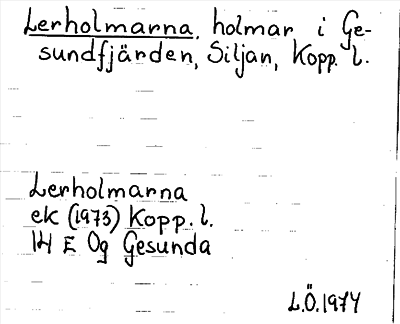 Lerholmarna, holmar i Ge-
sundfjärden, Siljan, Kopp. l.
Lerholmarna
ek (1973) Kopp. l.
14 E 0g Gesunda
L.Ö. 1974